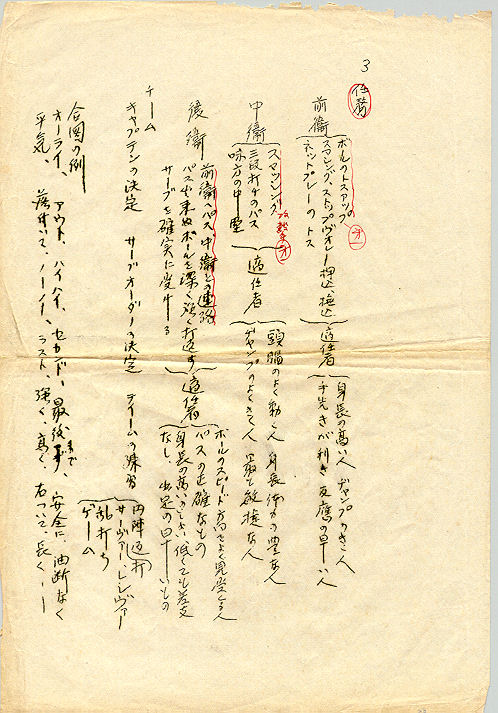 3
任務
前衛
ボールのスアップの 才一
スマッシング、ストップヴォレー 押込 掬込
ネットプレーの トス
適任者
身長の高い人 ジャンプのきく人
手先きが利き 反應の早い人
中衛
スマッシング 才一
三段打ちのパス
味方の中堅
適任者
頭腦のよく動く人 身長体力の豊な人
ジャンプのよくきく人 最も敏捷な人
後衛
前衛へパス、中衛との連絡
パス出来ぬボールを深く強く打返す
サーブを確実に受ける
適任者
ボールのスピード 方向をよく見定める人
パスの正確なもの
身長の高いのもよい 低くても差支
なし、出足の早いもの
チーム
キャプテンの決定 サーブオーダーの決定 ティームの練習
円陣返打
サーヴァー、レシーヴァー
乱打ち
ゲーム
合図の例
オーライ、アウト、ハイハイ、セカンド、最後まで、安全に、油断なく
平気、落付いて、ノーノー、ラスト、強く、高く、右、ついて、長く